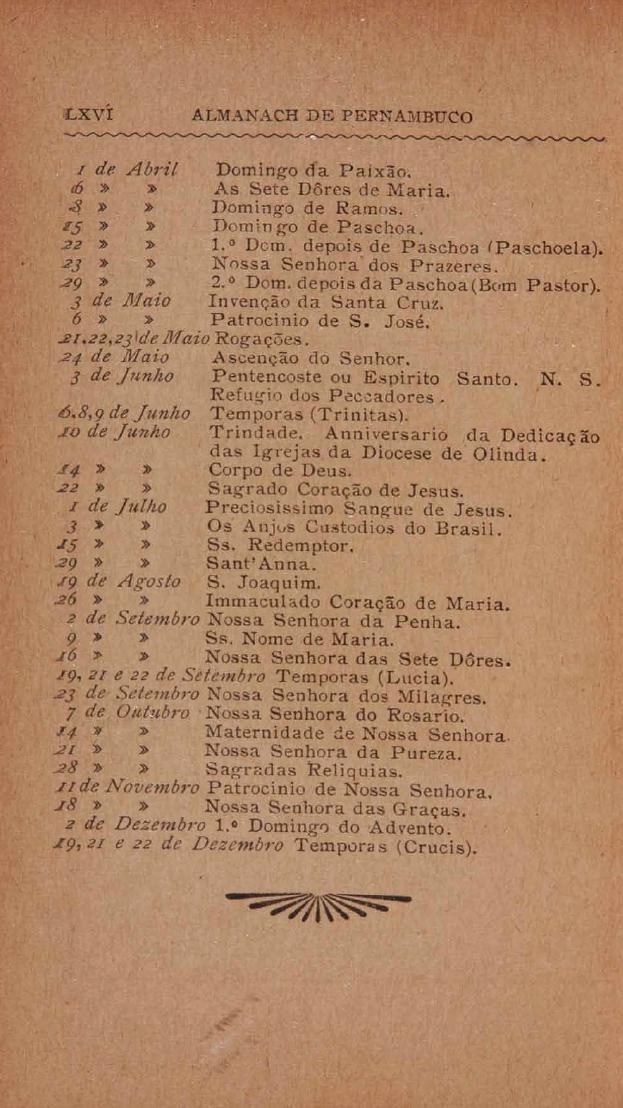 LXVI ALMANACH DE PERNAMBUCO
1 de Abril Domingo da Paixão.
6 » » As Sete Dôres de Maria.
8 » » Domingo de Ramos.
15 » » Domingo de Paschoa.
22 » » 1.º Dom. depois de Paschoa (Paschoela).
23 » » Nossa Senhora dos Prazeres.
29 » » 2.º Dom. depois da Paschoa (Bom Pastor).
3 de Maio Invenção da Santa Cruz.
6 » » Patrocinio de S. José.
21,22,23 de Maio Rogações.
24 de Maio Ascenção do Senhor.
3 de Junho Pentencoste ou Espirito Santo. N. S.
Refugio dos Peccadores.
6,8,9 de Junho Temporas (Trinitas).
10 de Junho Trindade. Anniversario da Dedicação
das Igrejas da Diocese de Olinda.
14 » » Corpo de Deus.
22 » » Sagrado Coração de Jesus.
1 de Julho Preciosissimo Sangue de Jesus.
3 » » Os Anjos Custodios do Brasil.
15 » » Ss. Redemptor.
29 » » Sant'Anna.
19 de Agosto S. Joaquim.
26 » » Immaculado Coração de Maria.
2 de Setembro Nossa Senhora da Penha.
9 » » Ss. Nome de Maria.
16 » » Nossa Senhora das Sete Dôres.
19, 21 e 22 de Setembro Temporas (Lucia).
23 de Setembro Nossa Senhora dos Milagres.
7 de Outubro Nossa Senhora do Rosario.
14 » » Maternidade de Nossa Senhora.
21 » » Nossa Senhora da Pureza.
28 » » Sagradas Reliquias.
11 de Novembro Patrocinio de Nossa Senhora.
18 » » Nossa Senhora das Graças.
2 de Dezembro 1.º Domingo do Advento.
19, 21 e 22 de Dezembro Temporas (Crucis).